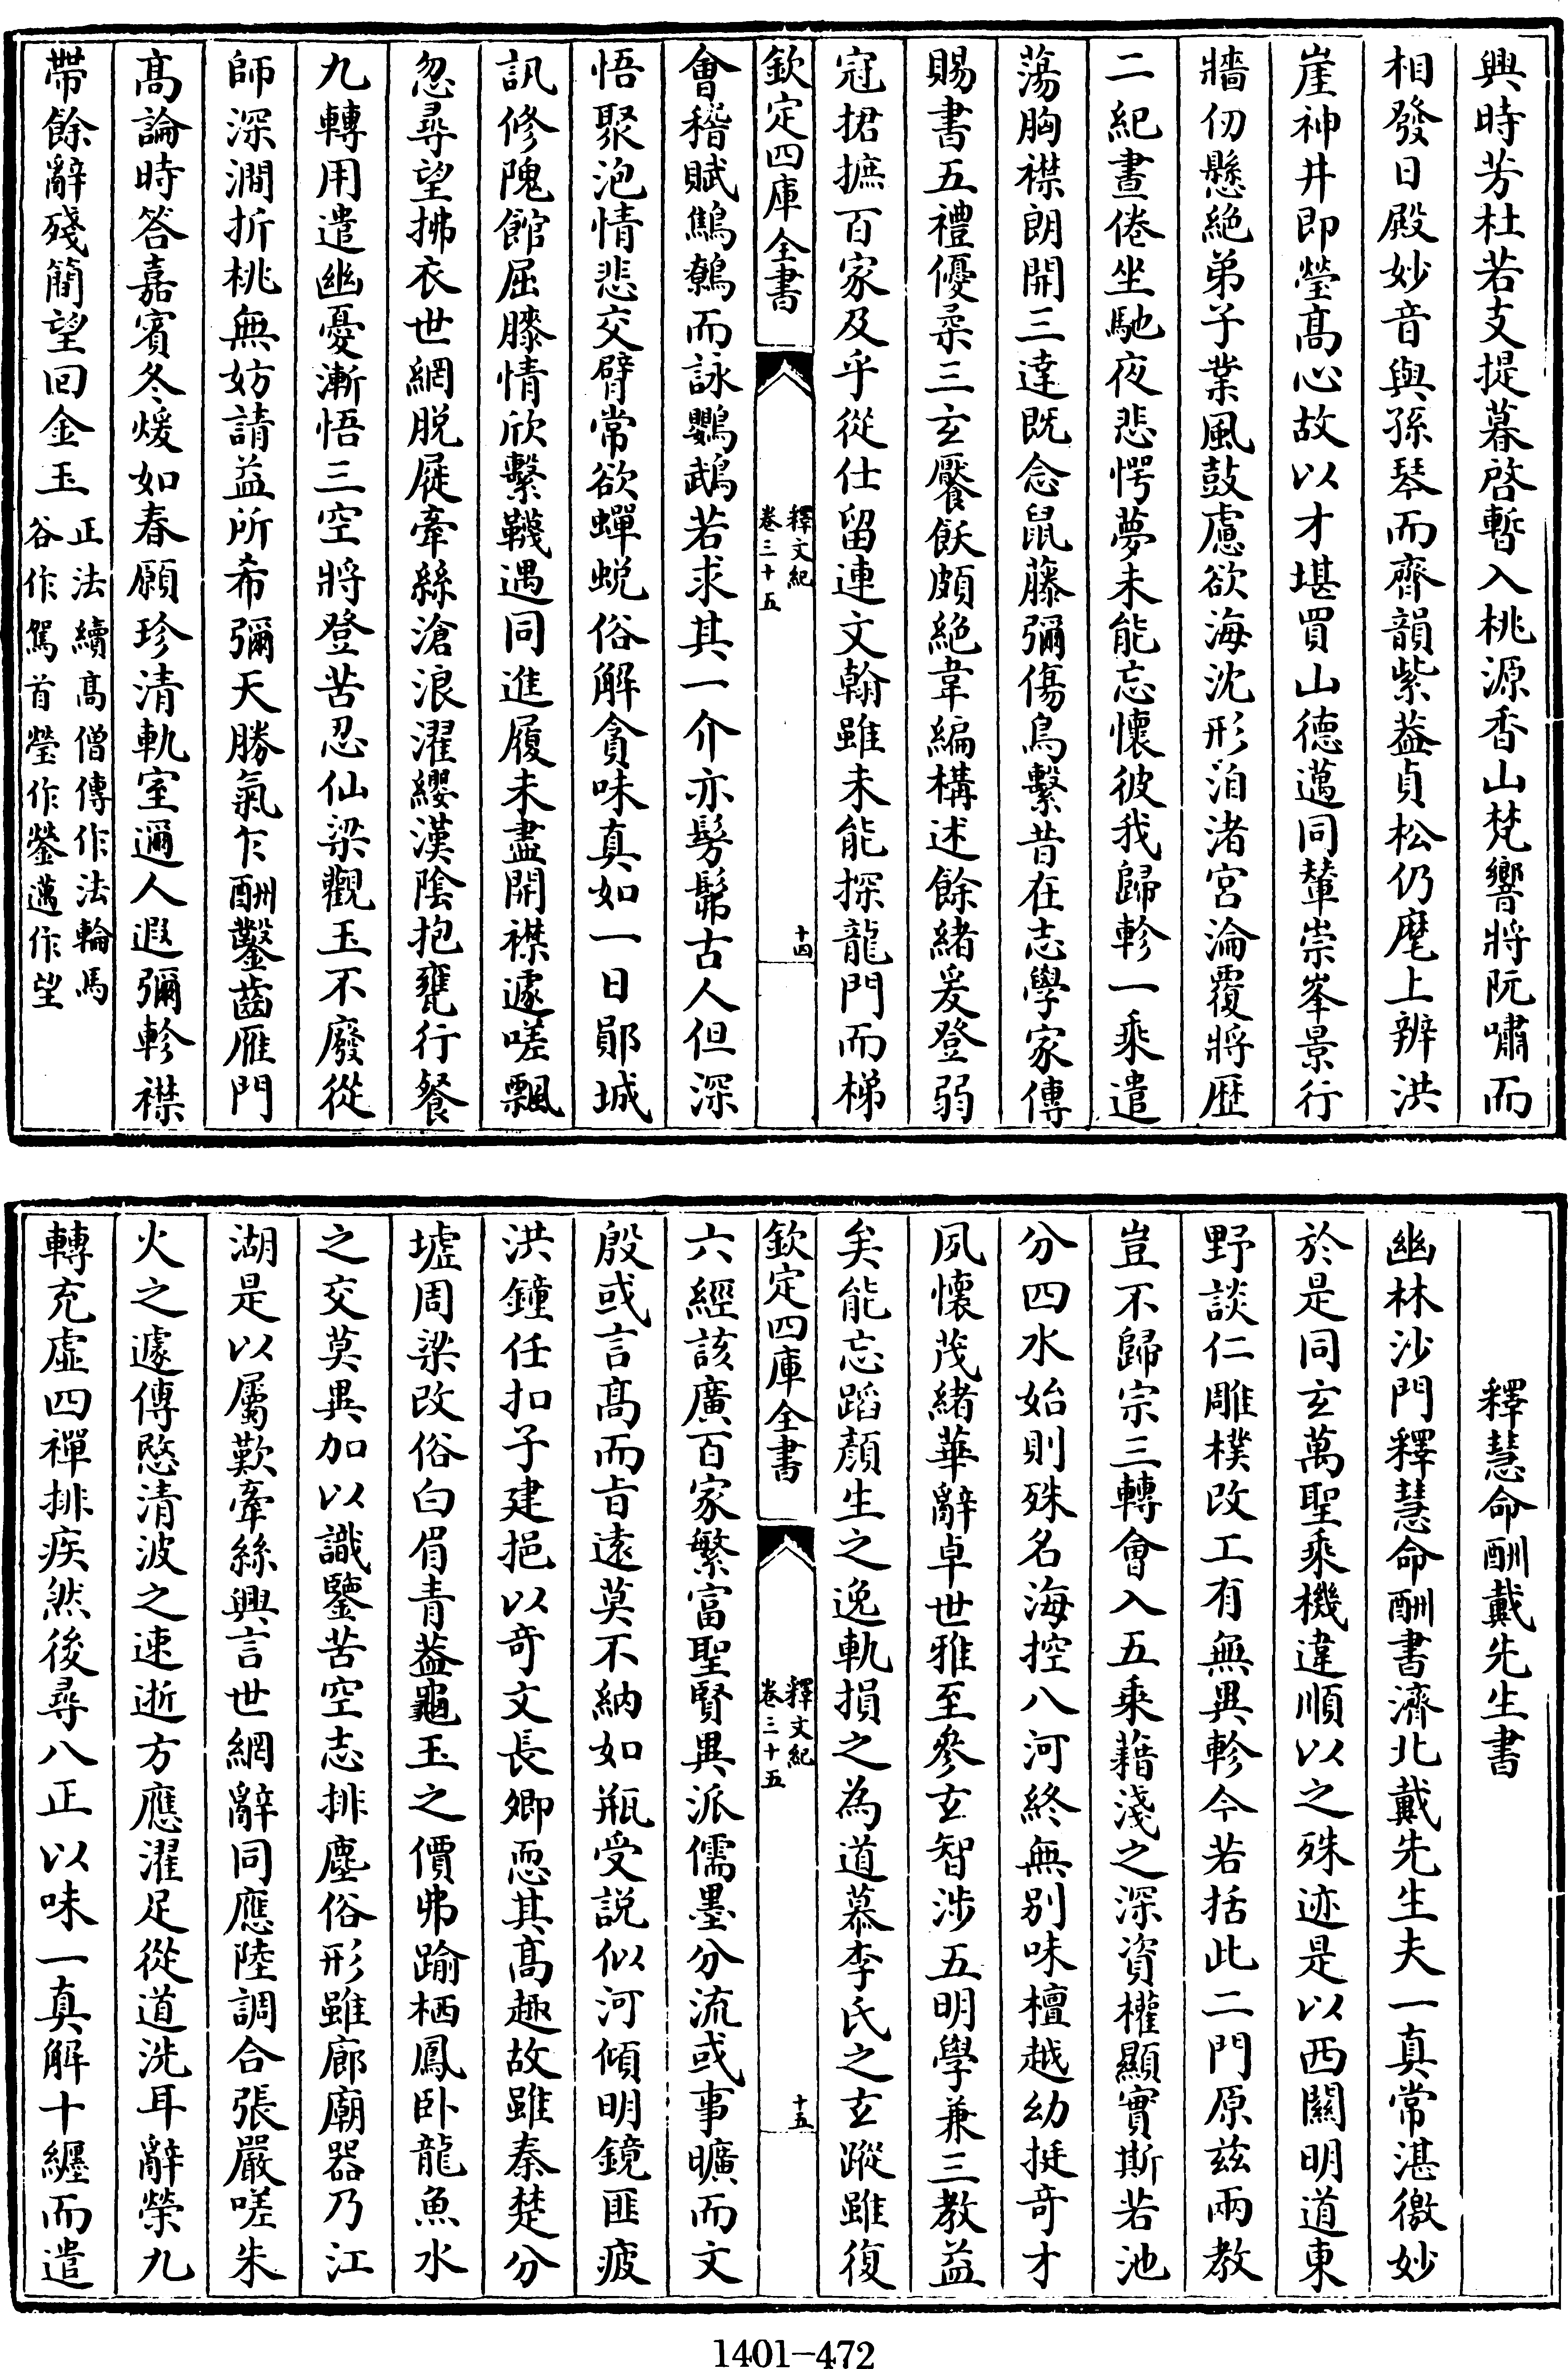 興時芳杜若支提暮啓暫入桃源香山梵響將阮嘯而
相發日殿妙音與孫琴而齊韻紫葢貞松仍麾上辨洪
崖神井即瑩髙心故以才堪買山德邁同輦崇峯景行
牆仞懸絶弟子業風鼓慮欲海沈形洎渚宮淪覆將歴
二紀晝倦坐馳夜悲愕夢未能忘懷彼我歸軫一乘遣
蕩胸襟朗開三達既念鼠藤彌傷鳥繫昔在志學家傳
賜書五禮優柔三玄饜飫頗絶韋編構述餘緒爰登弱
冠捃摭百家及乎從仕留連文翰雖未能探龍門而梯
欽定四庫全書
釋文紀
卷三十五
十四
會稽賦鷦鷯而詠鸚鵡若求其一介亦髣髴古人但深
悟聚泡情悲交臂常欲蟬蜕俗解貪味真如一日鄖城
訊修隗館屈膝情欣繫韈遇同進履未盡開襟遽嗟飄
忽尋望拂衣世網脱屣牽絲滄浪濯纓漢陰抱甕行餐
九轉用遣幽憂漸悟三空將登苦忍仙梁觀玉不廢從
師深澗折桃無妨請益所希彌天勝氣乍酬鑿齒雁門
髙論時答嘉賓冬煖如春願珍清軌室邇人遐彌軫襟
帶餘辭殘簡望回金玉
正法續髙僧傳作法輪馬
谷作駕首瑩作鎣邁作望
釋慧命酬戴先生書
幽林沙門釋慧命酬書濟北戴先生夫一真常湛徼妙
於是同玄萬聖乘機違順以之殊迹是以西闗明道東
野談仁雕樸改工有無異軫今若括此二門原兹兩教
豈不歸宗三轉會入五乘藉淺之深資權顯實斯若池
分四水始則殊名海控八河終無别味檀越幼挺奇才
夙懷茂緒華辭卓世雅至參玄智涉五明學兼三教益
矣能忘蹈顔生之逸軌損之為道慕李氏之玄蹤雖復
欽定四庫全書
釋文紀
卷三十五
十五
六經該廣百家繁富聖賢異派儒墨分流或事曠而文
殷或言髙而㫖遠莫不納如瓶受説似河傾明鏡匪疲
洪鐘任扣子建挹以奇文長卿恧其髙趣故雖秦楚分
墟周梁改俗白眉青葢龜玉之價弗踰栖鳳卧龍魚水
之交莫異加以識鑒苦空志排塵俗形雖廊廟器乃江
湖是以屬歎牽絲興言世網辭同應陸調合張嚴嗟朱
火之遽傳愍清波之速逝方應濯足從道洗耳辭榮九
轉充虛四禪排疾然後尋八正以味一真解十纒而遣
1401-472